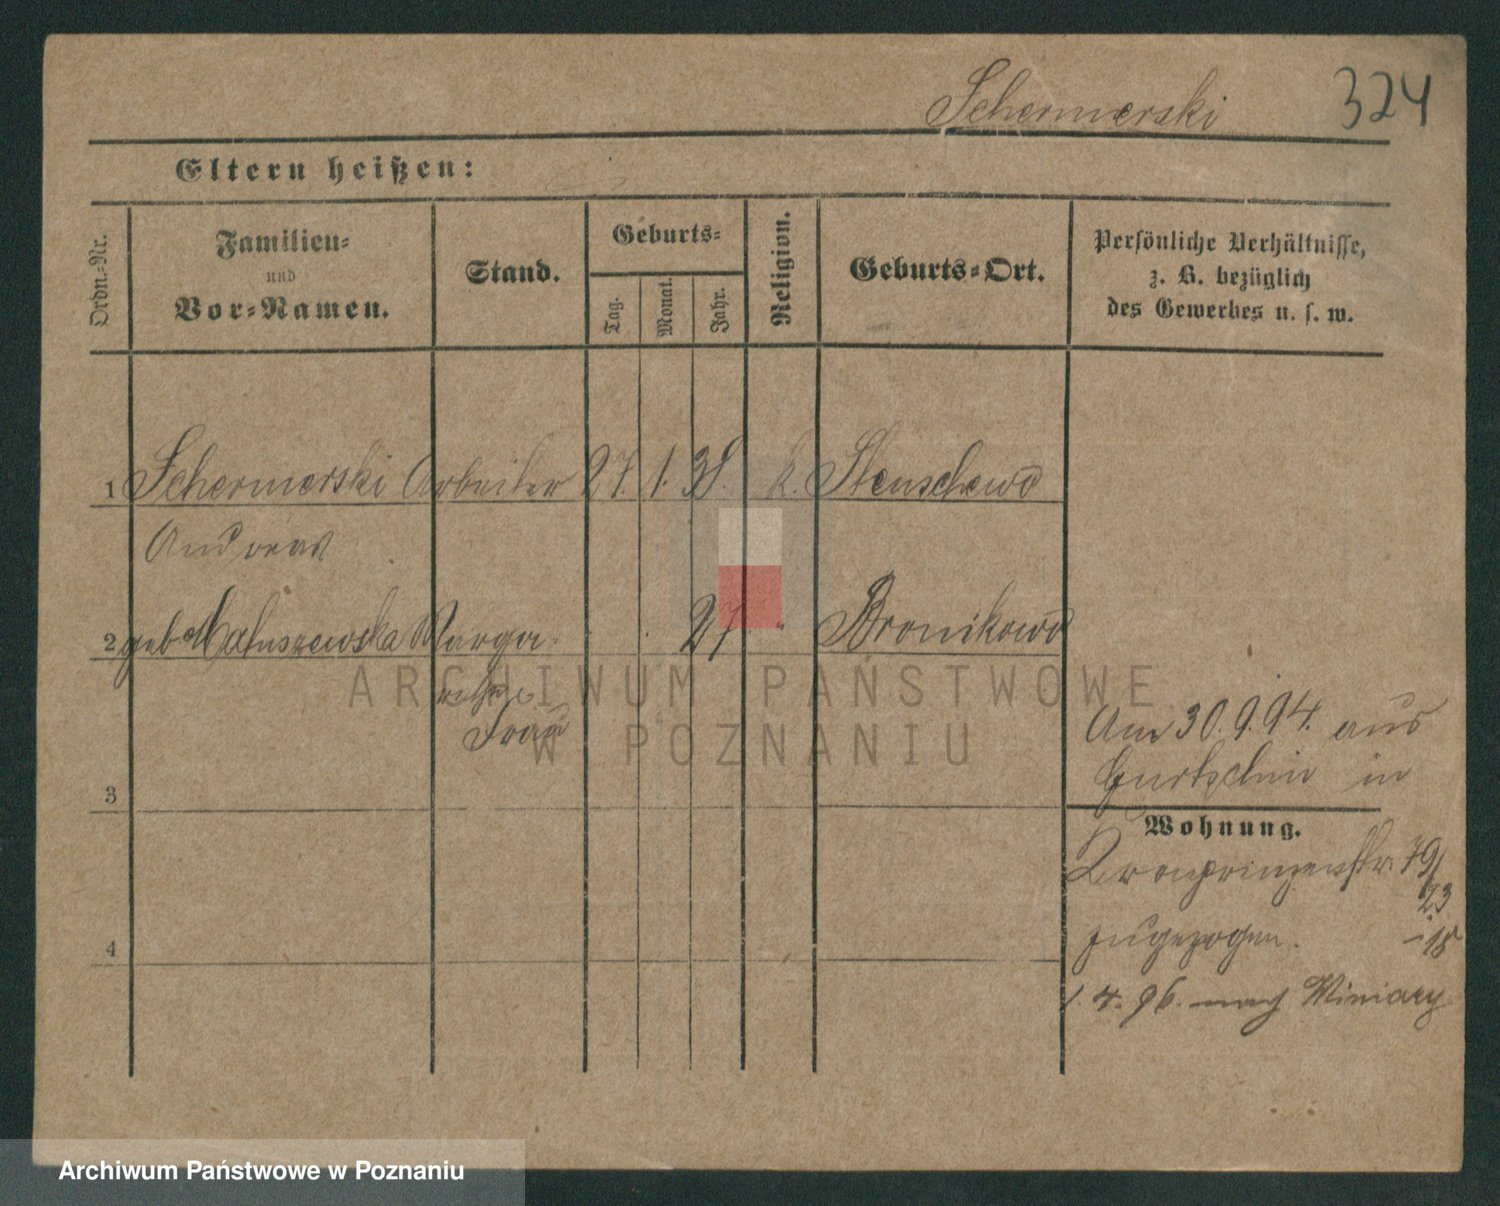 Schermerski 324
Eltern heißen:
Ordn.-Nr.
Familien-
und
Vor-Namen.
Stand.
Geburts-
Tag.
Monat.
Jahr.
Religion.
Geburts-Ort.
Persönliche Verhältnisse,
z. B. bezüglich
des Gewerbes u. s. w.
1 Schermerski Arbeiter 27. 1. 38. k. Stenschewo
Andreas
2 geb Matuszewska Marga- 27 " Bronikowo
rethe
Frau
Am 30.9.94. aus
Gurtschin in
3
Wohnung.
Kronprinzenstr. 79/
23
zugezogen. - 18
4
1. 4. 96. nach Winiary
ARCHIWUM PAŃSTWOWE
W POZNANIU
Archiwum Państwowe w Poznaniu